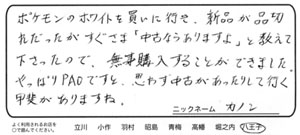 ポケモンのホワイトを買いに行き、新品が品切
れだったがすぐさま「中古ならありますよ」と教えて
下さったので、無事購入することができました。
やっぱりPAOですと、思わず中古があったりして行く
甲斐がありますね。
ニックネーム カノン
よく利用されるお店を
○で囲んでください。
立川 小作 羽村 昭島 青梅 高幡 堀之内 八王子